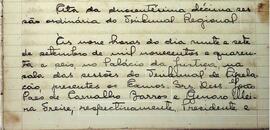 Acta da ducentésima décima ses
são ordinária do Tribunal Regional.
Às nove horas do dia vinte e sete
de setembro de mil novecentos e quaren
ta e seis, no Palácio da Justiça, na
sala das sessões do Tribunal de Apela
ção, presentes os Exmos. Srs. Des. João
Paes de Carvalho Barros e Genaro
Freire, respectivamente, Presidente e